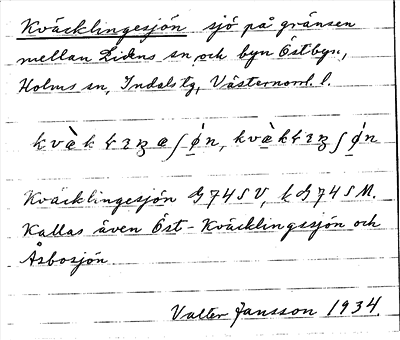 Kväcklingesjön sjö på gränsen
mellan Lidens sn och byn Östbyn,
Holms sn, Indals tg, Västernorrl. l.
Kväcklingesjön G 74 S V, k G 74 S M.
Kallas även Öst-Kväcklingssjön och
Åsbosjön
Valter Jansson 1934.